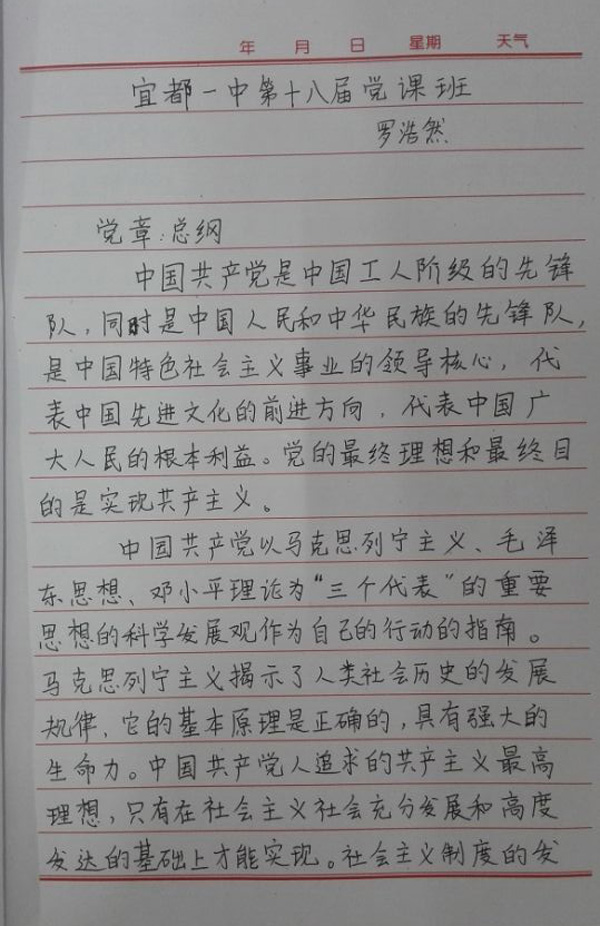 年 月 日 星期 天气
宜都一中第十八届党课班
罗浩然
党章:总纲
中国共产党是中国工人阶级的先锋
队,同时是中国人民和中华民族的先锋队,
是中国特色社会主义事业的领导核心,代
表中国先进文化的前进方向,代表中国广
大人民的根本利益。党的最终理想和最终目
的是实现共产主义。
中国共产党以马克思列宁主义、毛泽
东思想、邓小平理论为“三个代表”的重要
思想的科学发展观作为自己的行动的指南。
马克思列宁主义揭示了人类社会历史的发展
规律,它的基本原理是正确的,具有强大的
生命力。中国共产党人追求的共产主义最高
理想,只有在社会主义社会充分发展和高度
发达的基础上才能实现。社会主义制度的发